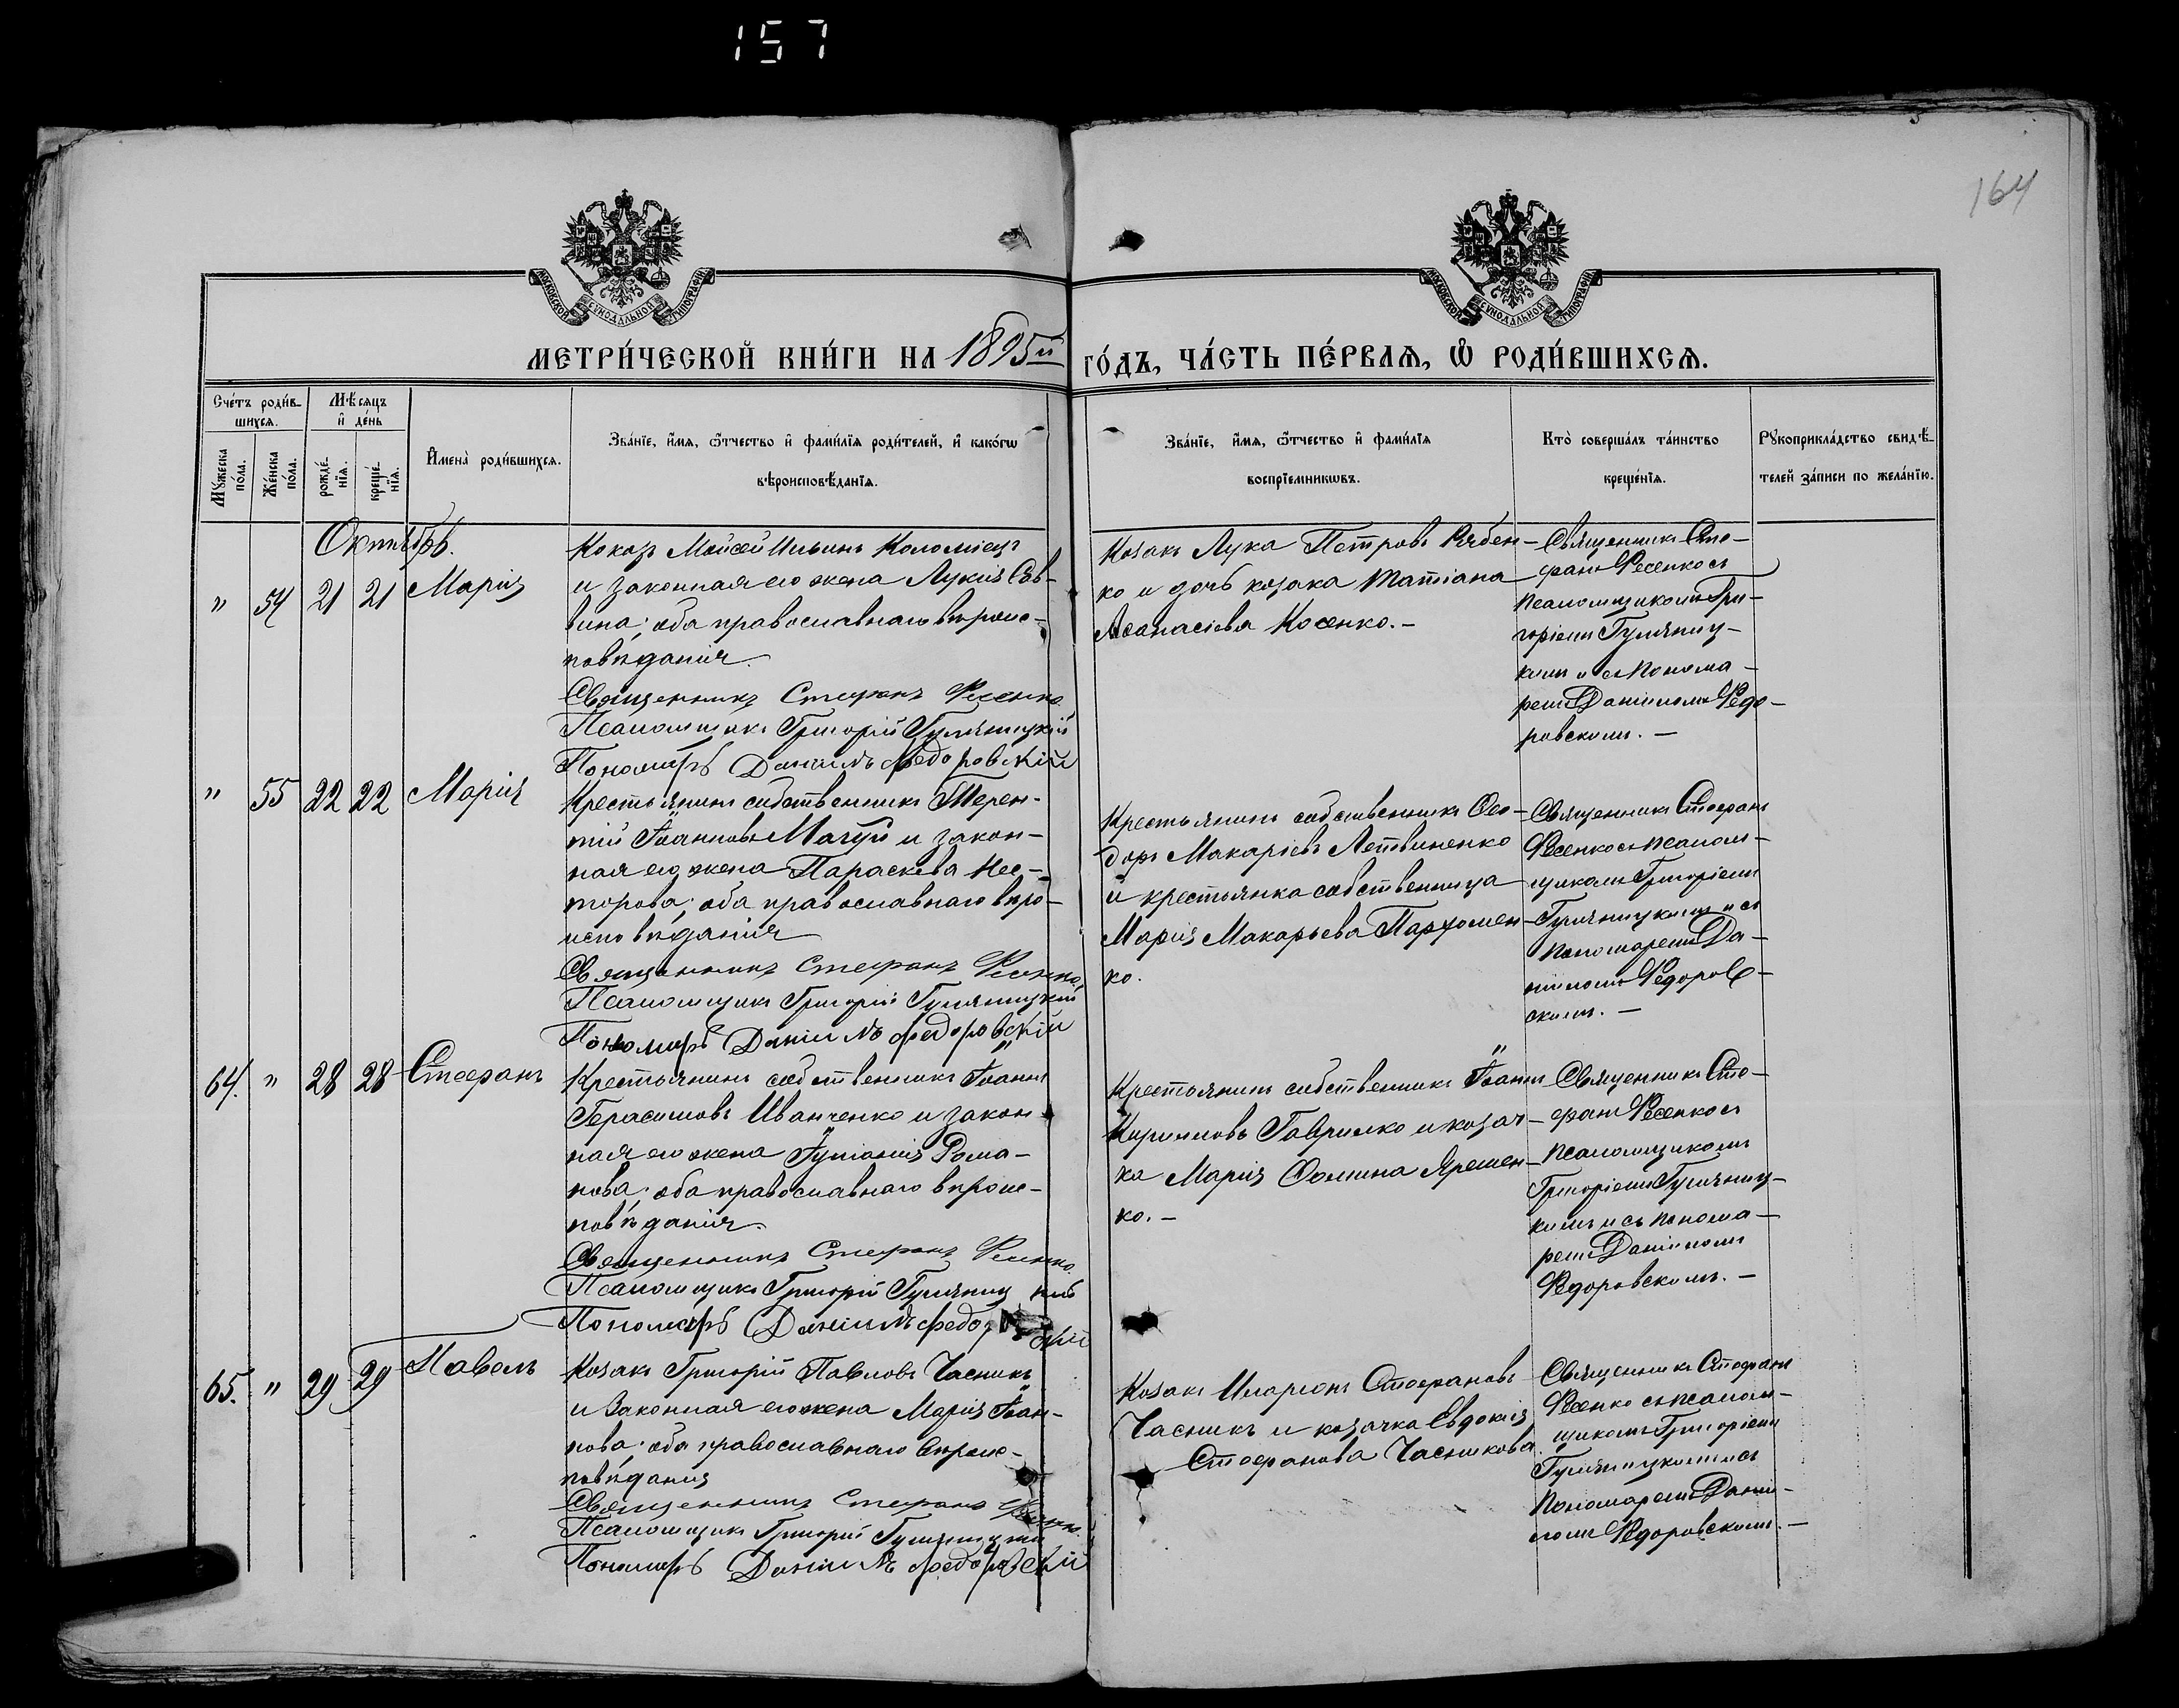 157
164
МОСКОВСКОЙ СѴНОДАЛЬНОЙ ТИПОГРАФІИ
МОСКОВСКОЙ СѴНОДАЛЬНОЙ ТИПОГРАФІИ
МЕТРИ́ЧЕСКОЙ КНИ́ГИ НА 1895й ГО́ДЪ, ЧА́СТЬ ПЕ́РВАЯ, Ѿ РОДИ́ВШИХСЯ.
Сче́тъ роди́в-
шихся.
Мꙋжеска по́ла.
Же́нска по́ла.
Мѣ́сяцъ
и҆ де́нь
рожде́-
нїя.
креще́-
нїя.
И҆мена̀ роди́вшихся.
Зва́нїе, и҆́мя, ѻ҆́тчество и҆ фами́лїя роди́телей, и҆ како́гѡ
вѣроисповѣ́данїя.
Зва́нїе, и҆́мя, ѻ҆́тчество и҆ фами́лїя
воспрїемникѡвъ.
Кто̀ соверша́лъ та́инство
креще́нїя.
Рꙋкоприкла́дство свидѣ́-
телей за́писи по жела́нїю.
Октябрь.
" 54 21 21 Марія
Козакъ Моисей Ильинъ Коломіецъ
и законная его жена Лукія Сав-
вина; оба православнаго вѣроис-
повѣданія.
Священникъ Стефанъ Фесенко
Псаломщикъ Григорій Гуляницкій
Пономарь Даніилъ Федоровскій
Козакъ Лука Петровъ Рябен-
ко и дочь козака Татіана
Аѳанасіева Косенко.-
Священникъ Сте-
фанъ Фесенко съ
псаломщикомъ Гри-
горіемъ Гуляниц-
кимъ и съ понома-
ремъ Даніиломъ Федо-
ровскимъ.-
" 55 22 22 Марія
Крестьянинъ собственникъ Терен-
тій Іоанновъ Мачуй и закон-
ная его жена Параскева Нес-
торова; оба православнаго вѣро-
исповѣданія
Священникъ Стефанъ Фесенко
Псаломщикъ Григорій Гуляницкій
Пономарь Даніилъ Федоровскій
Крестьянинъ собственникъ Ѳео-
доръ Макаріевъ Летвиненко
и крестьянка собственница
Марія Макарьева Пархомен-
ко.
Священникъ Стефанъ
Фесенко съ псалом-
щикомъ Григоріемъ
Гуляницкимъ и съ
пономаремъ Да-
ніиломъ Федоров-
скимъ.-
64. " 28 28 Стефанъ
Крестьянинъ собственникъ Іоаннъ
Герасимовъ Иванченко и закон-
ная его жена Іуліанія Рома-
нова; оба православнаго вѣроис-
повѣданія.
Священникъ Стефанъ Фесенко.
Псаломщикъ Григорій Гуляницкій
Пономарь Даніилъ Федоровскій
Крестьянинъ собственникъ Іоаннъ
Кирилловъ Гаврилко и козач-
ка Марія Ѳомина Ярешен-
ко.-
Священникъ Сте-
фанъ Фесенко съ
псаломщикомъ
Григоріемъ Гуляниц-
кимъ и съ понома-
ремъ Даніиломъ
Федоровскимъ.-
65. " 29 29 Павелъ
Козакъ Григорій Павловъ Часникъ
и законная его жена Марія Іоан-
нова; оба православнаго вѣроис-
повѣданія
Священникъ Стефанъ Фесенко.
Псаломщикъ Григорій Гуляницкій
Пономарь Даніилъ Федоровскій
Козакъ Иларіонъ Стефановъ
Часникъ и козачка Евдокія
Стефанова Часникова.
Священникъ Стефанъ
Фесенко съ псалом-
щикомъ Григоріемъ
Гуляницкимъ и съ
пономаремъ Даніи-
ломъ Федоровскимъ.-